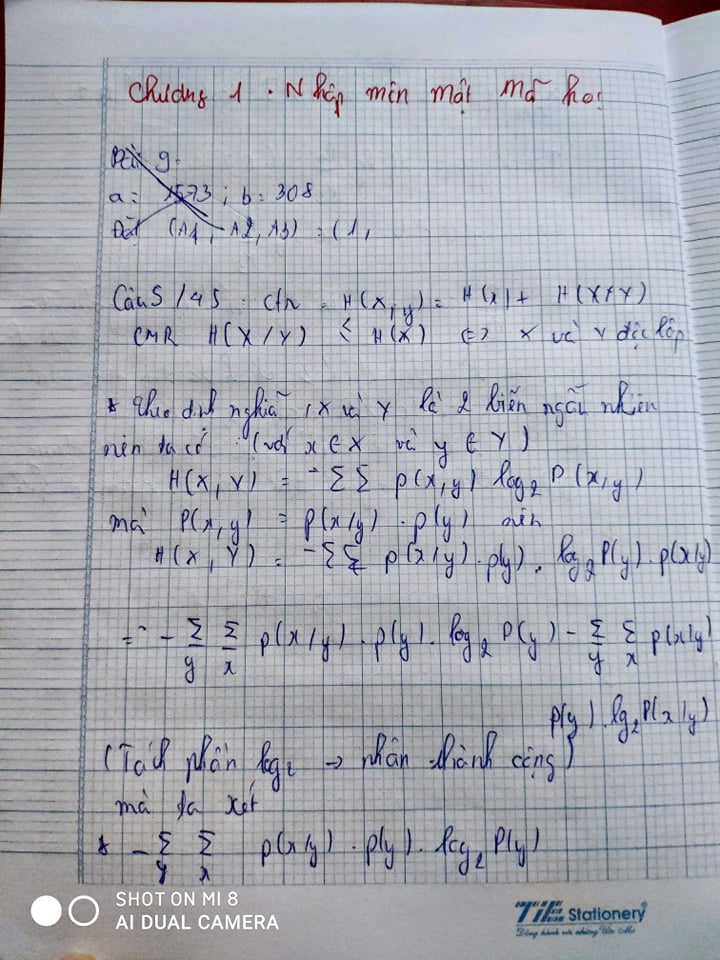 Chương 1. Nhập môn mật mã học
Bài 9.
a = 1573 ; b = 308
Đặt (A1, A2, A3) = (1,
Câu 5 / 45 : ctr : H(x,y) = H(x) + H(X/Y)
CMR H(X/Y) ≤ H(X) <=> X và Y độc lập
* Theo định nghĩa, X và Y là 2 biến ngẫu nhiên
nên ta có (với x ∈ X và y ∈ Y)
H(X, Y) = - Σ Σ p(x,y) log2 P(x,y)
mà P(x,y) = p(x/y) . p(y) nên
H(X, Y) = - Σ Σ p(x/y) . p(y) . log2 P(y) . p(x/y)
= - Σ_y Σ_x p(x/y) . p(y) . log2 P(y) - Σ_y Σ_x p(x/y)
p(y) . lg2 P(x/y)
(Tách phần log2 → nhân thành cộng)
mà ta xét
* - Σ_y Σ_x p(x/y) . p(y) . log2 P(y)
SHOT ON MI 8
AI DUAL CAMERA
Stationery